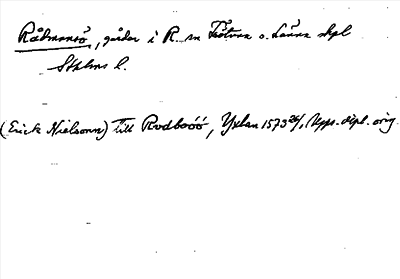 Rådmansö, gårdar i R. sn Frötuna o. Länna skpl
Sthlms l.
(Erick Nielsonn) till Rodbsöö, Yxlan 1573 26/1 Upps. dipl. orig.